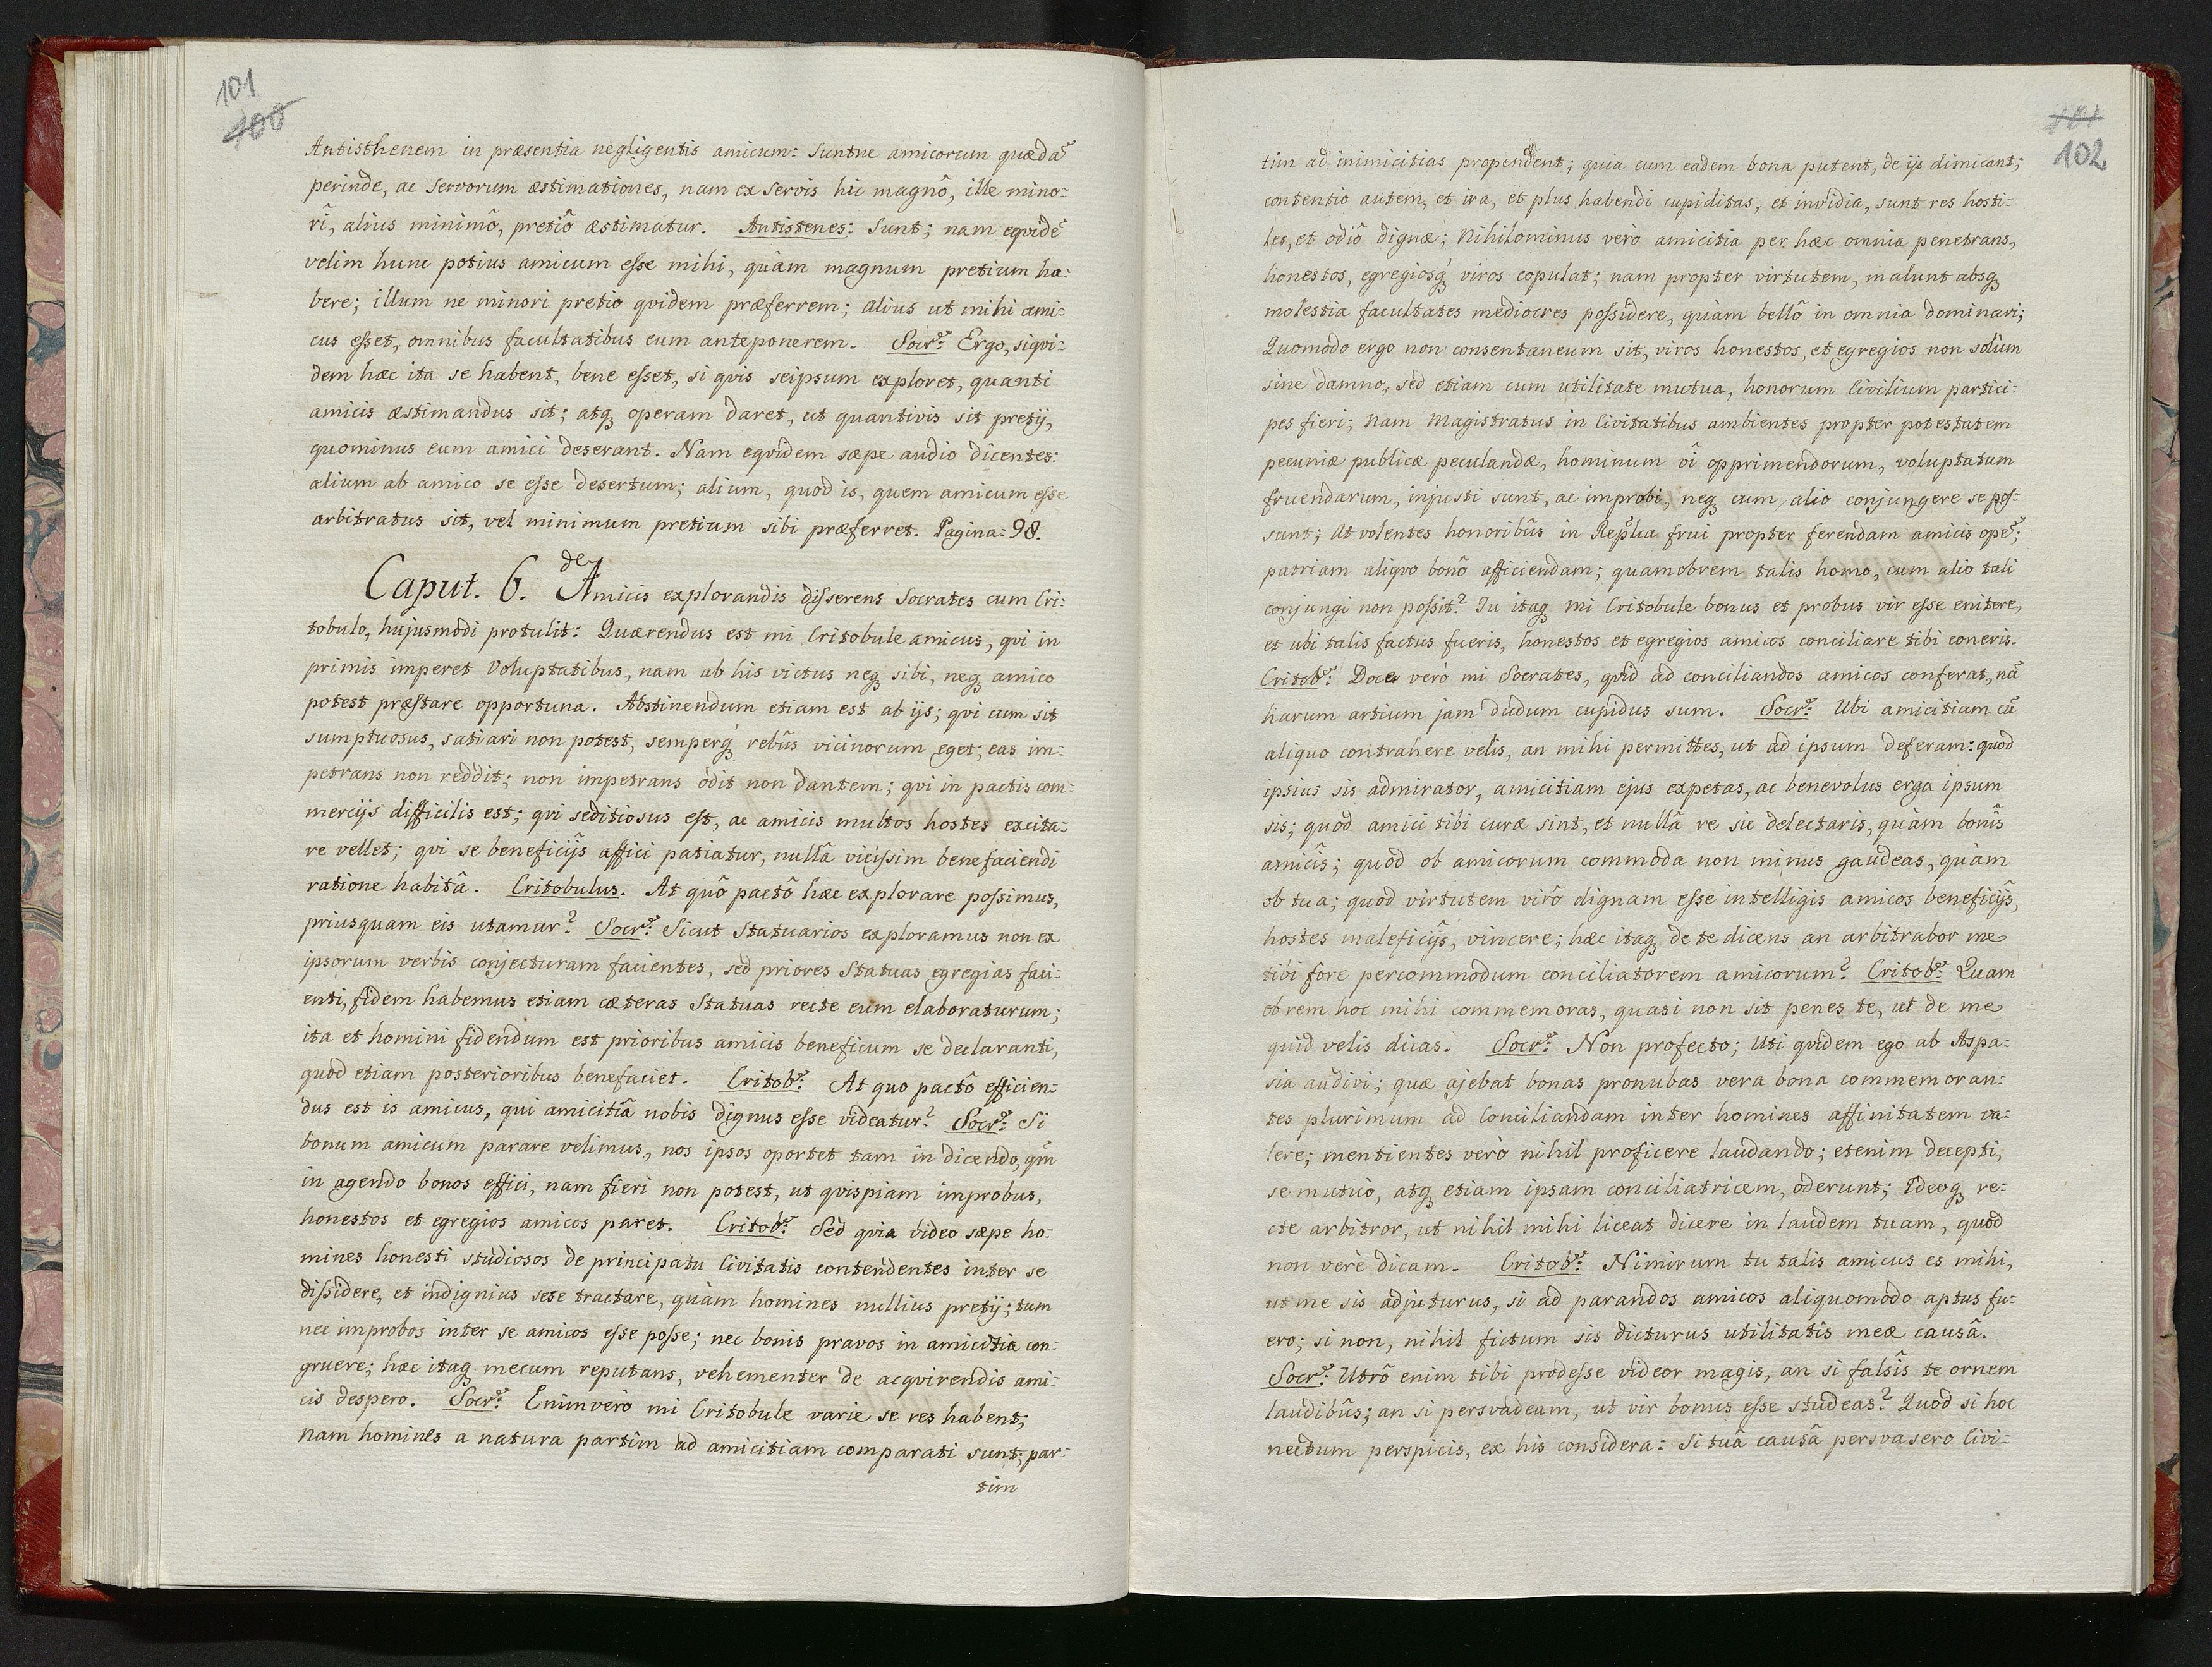 101
100
Antisthenem in præsentia negligentis amicum: Suntne amicorum quædā
perinde, ac servorum æstimationes, nam ex servis hic magnô, ille mino:
rî, alius minimô, pretiô æstimatur. Antistenes: Sunt; nam eqvidē
velim hunc potius amicum esse mihi, quàm magnum pretium ha:
bere; illum ne minori pretio qvidem præferrem; alius ut mihi ami:
cus esset, omnibus facultatibus eum anteponerem. Socr: Ergo, siqvi:
dem hæc ita se habent, bene esset, si qvis seipsum exploret, quanti
amicis æstimandus sit; atq operam daret, ut quantivis sit pretij,
quominus eum amici deserant. Nam eqvidem sæpe audio dicentes:
alium ab amico se esse desertum; alium, quod is, quem amicum esse
arbitratus sit, vel minimum pretium sibi præferret. Pagina: 98.
Caput. 6. de Amicis explorandis disserens Socrates cum Cri:
tobulo, hujusmodi protulit: Quærendus est mi Critobule amicus, qvi in
primis imperet Voluptatibus, nam ab his victus neq sibi, neq amico
potest præstare opportuna. Abstinendum etiam est ab ijs; qvi cum sit
sumptuosus, satiari non potest, semperq rebûs vicinorum eget; eas im:
petrans non reddit; non impetrans odit non dantem; qvi in pactis com:
mercijs difficilis est; qvi seditiosus est, ac amicis multos hostes excita:
re vellet; qvi se beneficijs affici patiatur, nullâ vicissim benefaciendi
ratione habitâ. Critobulus. At quô pactô hæc explorare possimus,
priusquam eis utamur? Socr: Sicut Statuarios exploramus non ex
ipsorum verbis conjecturam facientes, sed priores Statuas egregias faci:
enti, fidem habemus etiam cæteras Statuas recte eum elaboraturum;
ita et homini fidendum est prioribus amicis beneficum se declaranti,
quod etiam posterioribus benefaciet. Critob: At quo pactô efficien:
dus est is amicus, qui amicitiâ nobis dignus esse videatur? Socr: Si
bonum amicum parare velimus, nos ipsos oportet tam in dicendo, qm̃
in agendo bonos effici, nam fieri non potest, ut qvispiam improbus,
honestos et egregios amicos paret. Critob: Sed qvia video sæpe ho:
mines honesti studiosos de principatu Civitatis contendentes inter se
dissidere, et indignius sese tractare, quàm homines nullius pretij; tum
nec improbos inter se amicos esse posse; nec bonis pravos in amicitia con:
gruere; hæc itaq mecum reputans, vehementer de acqvirendis ami:
cis despero. Socr: Enimverò mi Critobule varie se res habent;
nam homines a natura partim ad amicitiam comparati sunt; par:
tim
101
102
tim ad inimicitias propendent; quia cum eadem bona putent, de ijs dimicant;
contentio autem, et ira, et plus habendi cupiditas, et invidia, sunt res hosti:
les, et odiô dignæ; Nihilominus verò amicitia per hæc omnia penetrans,
honestos, egregiosq viros copulat; nam propter virtutem, malunt absq
molestia facultates mediocres possidere, quàm bellô in omnia dominari;
Quomodo ergo non consentaneum sit, viros honestos, et egregios non solùm
sine damno, sed etiam cum utilitate mutua, honorum Civilium partici:
pes fieri; Nam Magistratus in Civitatibus ambientes propter potestatem
pecuniæ publicæ peculandæ, hominum vî opprimendorum, voluptatum
fruendarum, injusti sunt, ac improbi, neq cum alio conjungere se pos:
sunt; At volentes honoribûs in Replca frui propter ferendam amicis opē;
patriam aliqvo bonô afficiendam; quamobrem talis homo, cum alio tali
conjungi non possit? Tu itaq mi Critobule bonus et probus vir esse enitere,
et ubi talis factus fueris, honestos et egregios amicos conciliare tibi coneris.
Critob: Doce verò mi Socrates, qvid ad conciliandos amicos conferat, nā
harum artium jam dudum cupidus sum. Socr: Ubi amicitiam cū
aliquo contrahere velis, an mihi permittes, ut ad ipsum deferam: quod
ipsius sis admirator, amicitiam ejus expetas, ac benevolus erga ipsum
sis; quod amici tibi curæ sint, et nullâ re sic delectaris, quam bonîs
amicîs; quod ob amicorum commoda non minus gaudeas, quàm
ob tua; quod virtutem virô dignam esse intelligis amicos beneficijs,
hostes maleficijs, vincere; hæc itaq de te dicens an arbitrabor me
tibi fore percommodum conciliatorem amicorum? Critob: Quam
obrem hoc mihi commemoras, quasi non sit penes te, ut de me
quid velis dicas. Socr: Non profecto; Uti qvidem ego ab Aspa:
sia audivi; quæ ajebat bonas pronubas vera bona commemoran:
tes plurimum ad Conciliandam inter homines affinitatem va:
lere; mentientes verò nihil proficere laudando; etenim decepti,
se mutuò, atq etiam ipsam conciliatricem, oderunt; Ideoq re:
cte arbitror, ut nihil mihi liceat dicere in laudem tuam, quod
non verè dicam. Critob: Nimirum tu talis amicus es mihi,
ut me sis adjuturus, si ad parandos amicos aliquomodo aptus fu:
ero; si non, nihil fictum sis dicturus utilitatis meæ causâ.
Socr: Utrô enim tibi prodesse videor magis, an si falsîs te ornem
laudibûs; an si persvadeam, ut vir bonus esse studeas? Quod si hoc
necdum perspicis, ex his considera: Si tuâ causâ persvasero Civi: